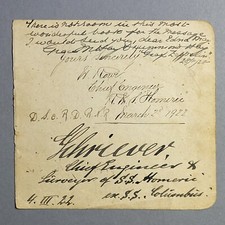 There is not room in this most
wonderful book for the message
I would send you, dear
Yours Sincerely
W. Rowe
Chief Engineer
R.M.S. Homeric
D.S.O. R.D. R.N.R March 2nd 1922
Schriever.
Chief Engineer &
Surveyor of S.S. Homeric
4. III. 22. ex. S.S. Columbus.